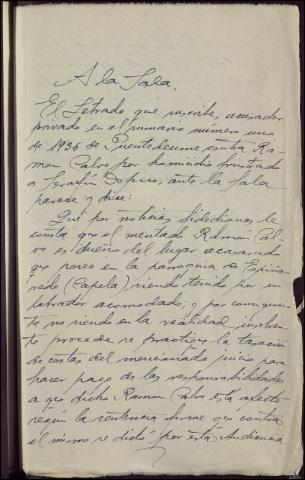 A la Sala.
El Letrado que suscribe, acusador
privado en el sumario número uno
de 1936 de Puentedeume contra Ra-
mon Calvo por homicidio frustrado
a Serafín Dopico, ante la Sala
parece y dice:
Que por noticias fidedignas le
consta que el mentado Ramón Cal-
vo es dueño del lugar acasarado
que posee en la parroquia de Espiña-
redo (Capela) siendo tenido por un
labrador acomodado; y por consiguien-
te no siendo en la realidad insolven-
te procede se practique la tasación
de costas del mencionado juicio para
hacer pago de las responsabilidades
a que dicho Ramon Calvo está afecto
según la sentencia firme que contra
el mismo se dictó por esta Audiencia